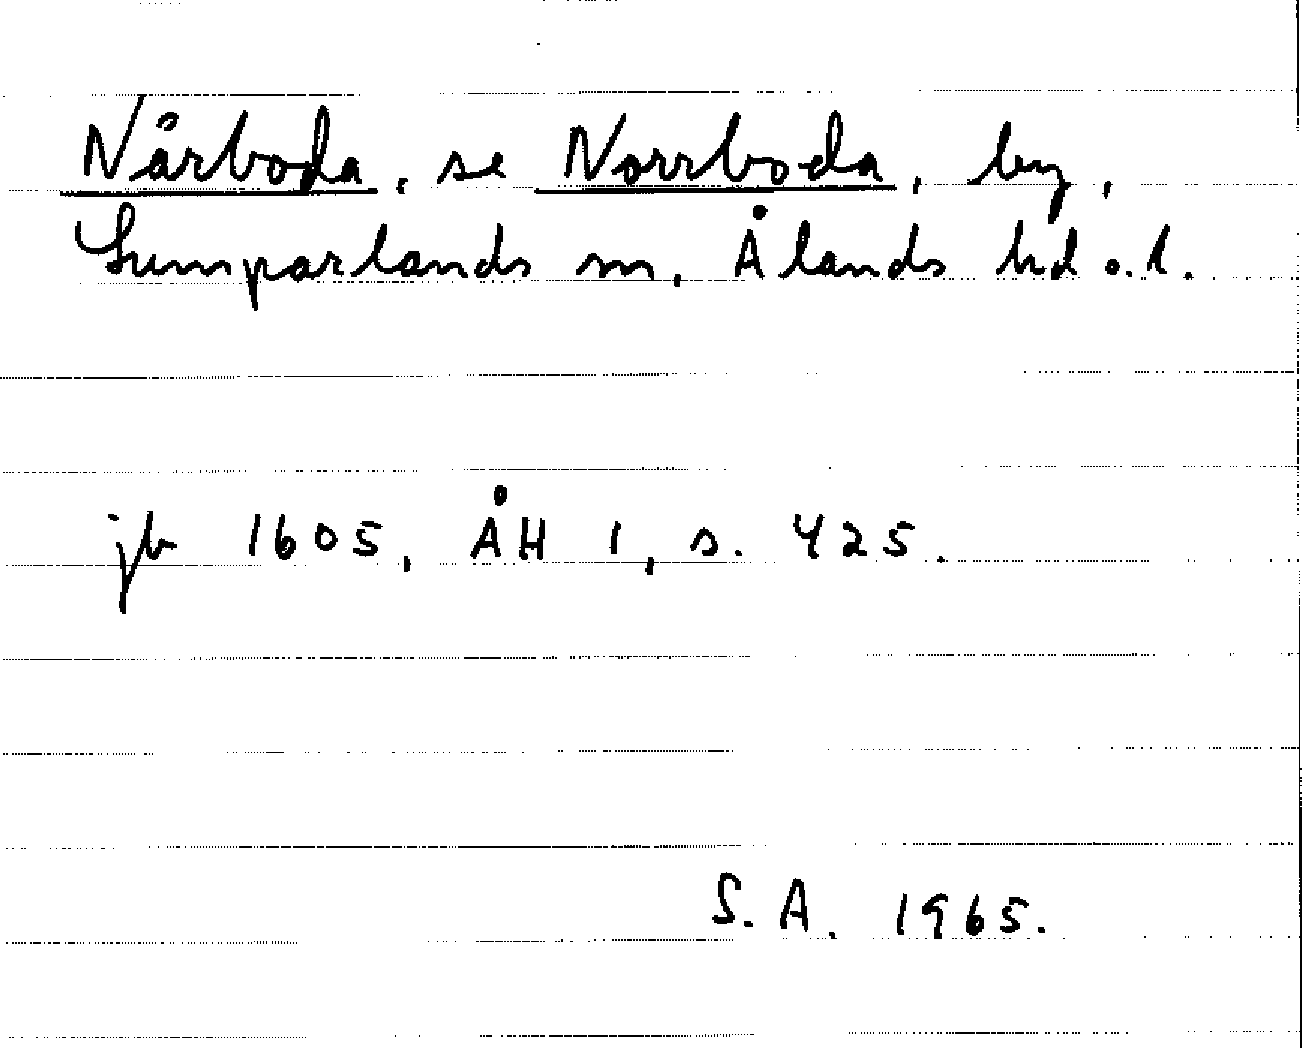 Nårboda, se Norrboda, by,
Lumparlands sn, Ålands hd o. l.
jb 1605, ÅH 1, s. 425.
S. A. 1965.